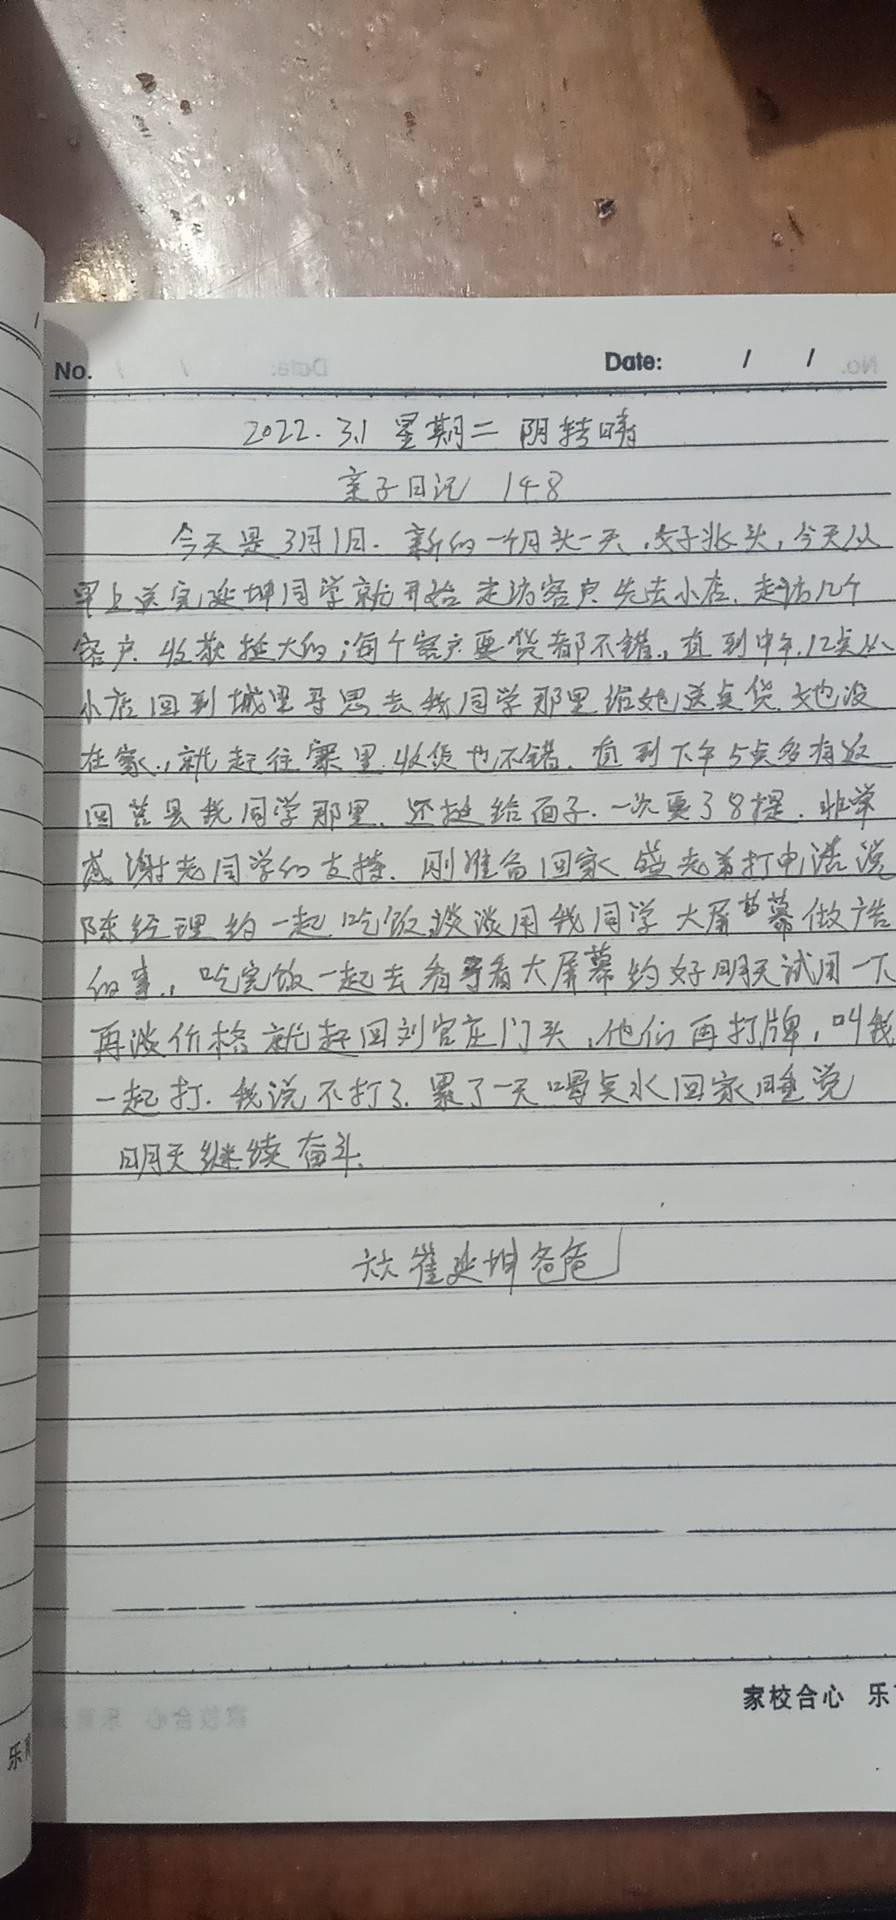 No.
Date: / /
2022.3.1 星期二 阴转晴
亲子日记 148
今天是3月1日.新的一个月头一天,好兆头,今天从
早上送完延坤同学就开始走访客户.先去小店.走访几个
客户.收获挺大的,每个客户要货都不错,直到中午.12点从
小店回到城里寻思去我同学那里给她送点货.她没
在家,就赶往寨里.收货也不错.直到下午5点多有返
回莒县我同学那里.还挺给面子.一次要了8提.非常
感谢老同学的支持.刚准备回家 盛老弟打电话说
陈经理约一起吃饭谈谈用我同学大屏幕做广告
的事,吃完饭一起去看看大屏幕约好明天试用一下
再谈价格就赶回刘官庄门头,他们再打牌,叫我
一起打.我说不打了.累了一天喝点水回家睡觉
明天继续奋斗.
六六崔延坤爸爸
家校合心 乐